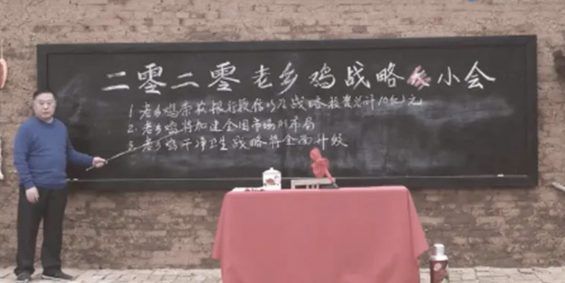 二零二零老乡鸡战略小会
1. 老乡鸡荣获银行授信以及战略投资总计10亿元
2. 老乡鸡将加速全国市场的布局
3. 老乡鸡干净卫生战略将全面升级